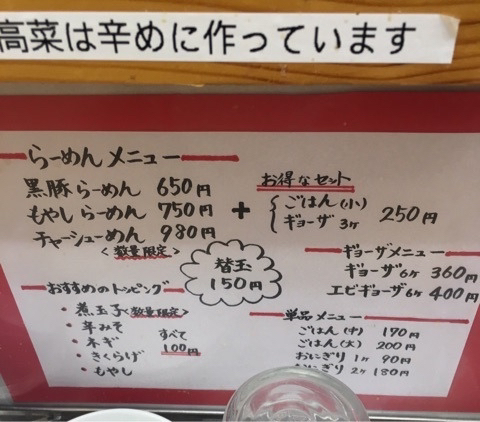 高菜は辛めに作っています
らーめんメニュー
黒豚らーめん 650円
もやしらーめん 750円
チャーシューめん 980円
<数量限定>
+
お得なセット
ごはん(小)
ギョーザ 3ヶ
250円
替玉
150円
ギョーザメニュー
ギョーザ 6ヶ 360円
エビギョーザ 6ヶ 400円
おすすめのトッピング
・煮玉子<数量限定>
・辛みそ
・ネギ
・きくらげ
・もやし
すべて
100円
単品メニュー
ごはん(中) 170円
ごはん(大) 200円
おにぎり 1ヶ 90円
おにぎり 2ヶ 180円